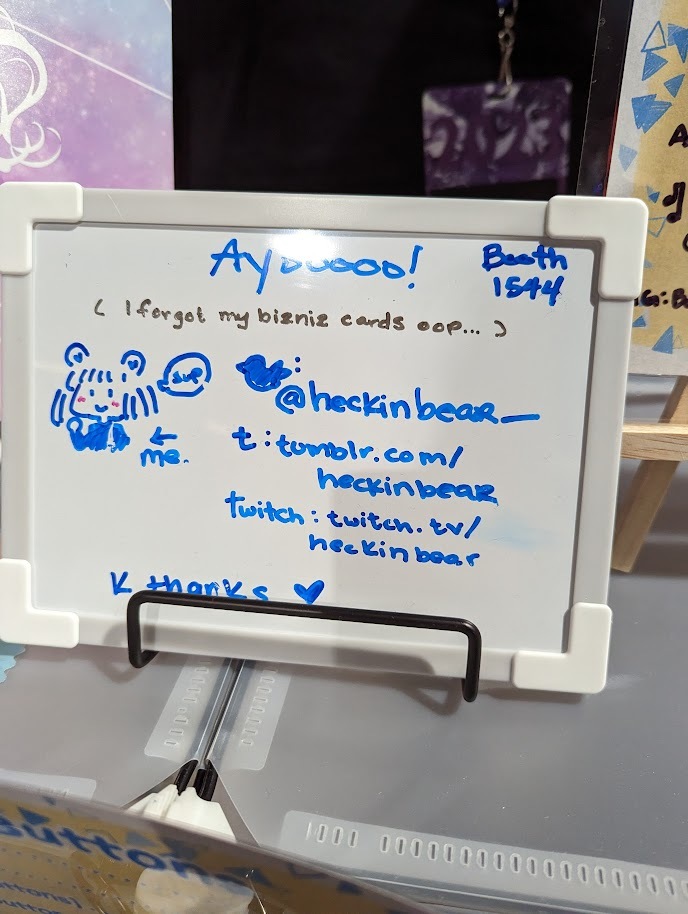 Ayooooo!
Booth
1544
( I forgot my bizniz cards oop... )
sup
← me.
:
@heckinbear_
t: tumblr.com/
heckinbear
twitch: twitch.tv/
heckinbear
K thanks ♥
Buttons